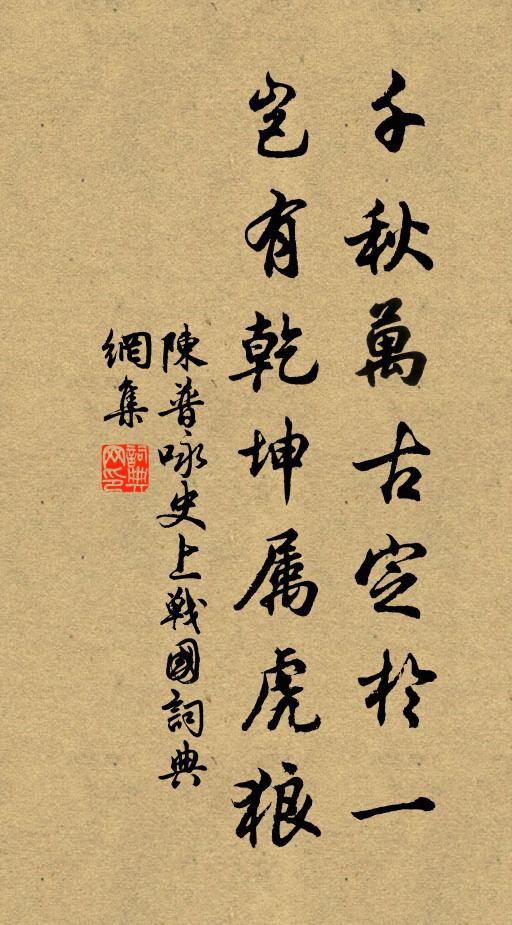 千秋萬古定於一
豈有乾坤属虎狼
陳普咏史上戰國詞典
網集
詞典
网印